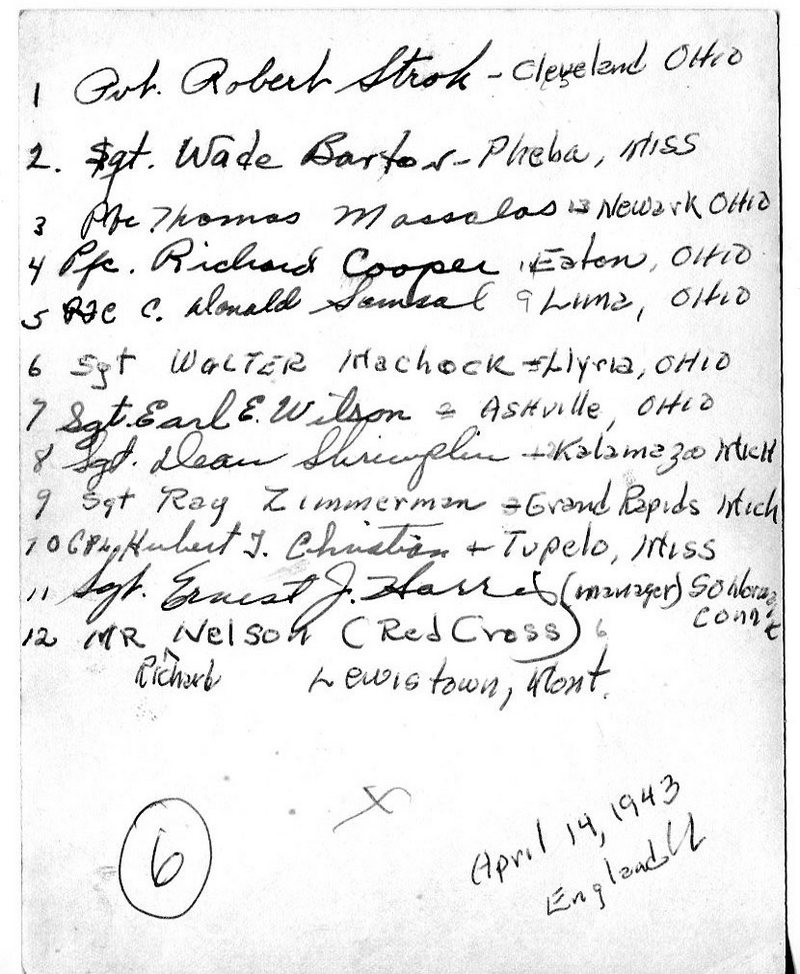 1 Pvt. Robert Strok - Cleveland OHIO
2. Sgt. Wade Barton - Pheba, MISS
3 Pfc Thomas Massalas - Newark OHIO
4 Pfc. Richard Cooper Eaton, OHIO
5 Pfc C. Donald Samsal 9 Lima, OHIO
6 Sgt WALTER Machock - Elyria, OHIO
7 Sgt. Earl E. Wilson - ASHville, OHIO
8 Sgt. Dean Shrimplin - Kalamazoo MICH
9 Sgt Ray Zimmerman - Grand Rapids Mich
10 Cpl. Hubert T. Christian - Tupelo, MISS
11 Sgt. Ernest J. Harris (manager)
Conn
12 MR Nelson (Red Cross) 6
Richard Lewistown, Mont.
X
6
April 14, 1943
England